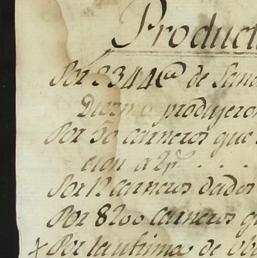 Product
Por 2344@ de
Diezmo produjeron
Por 50 carneros que
cion a 2 p.s . . .
Por 12 carneros dados
Por 8200 carneros q
x Por la ultima de